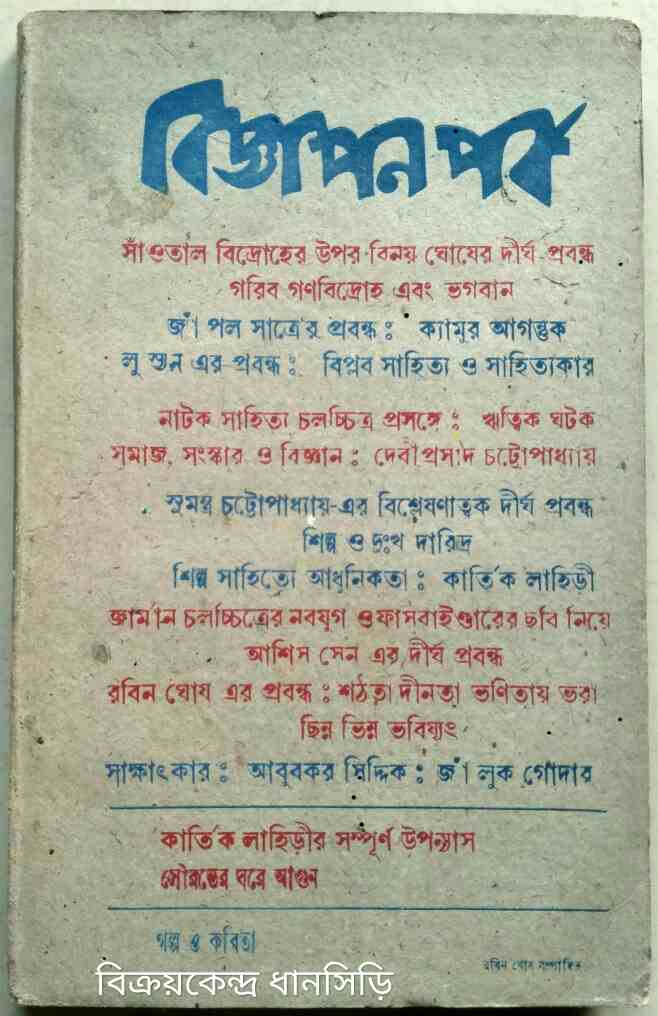 বিজ্ঞাপন পর্ব
সাঁওতাল বিদ্রোহের উপর বিনয় ঘোষের দীর্ঘ প্রবন্ধ
গরিব গণবিদ্রোহ এবং ভগবান
জাঁ পল সাত্রের প্রবন্ধ : ক্যামুর আগন্তুক
লু শুন এর প্রবন্ধ : বিপ্লব সাহিত্য ও সাহিত্যকার
নাটক সাহিত্য চলচ্চিত্র প্রসঙ্গে : ঋত্বিক ঘটক
সমাজ, সংস্কার ও বিজ্ঞান : দেবীপ্রসাদ চট্টোপাধ্যায়
সুমন্ত চট্টোপাধ্যায়-এর বিশ্লেষণাত্বক দীর্ঘ প্রবন্ধ
শিল্প ও দুঃখ দারিদ্র
শিল্প সাহিত্যে আধুনিকতা : কার্তিক লাহিড়ী
জার্মান চলচ্চিত্রের নবযুগ ও ফাসবাইণ্ডারের ছবি নিয়ে
আশিস সেন এর দীর্ঘ প্রবন্ধ
রবিন ঘোষ এর প্রবন্ধ : শঠতা দীনতা ভণিতায় ভরা
ছিন্ন ভিন্ন ভবিষ্যৎ
সাক্ষাৎকার : আবুবকর সিদ্দিক : জাঁ লুক গোদার
কার্তিক লাহিড়ীর সম্পূর্ণ উপন্যাস
সৌরন্তের ঘরে আগুন
গল্প ও কবিতা
রবিন ঘোষ সম্পাদিত
বিক্রয়কেন্দ্র ধানসিড়ি